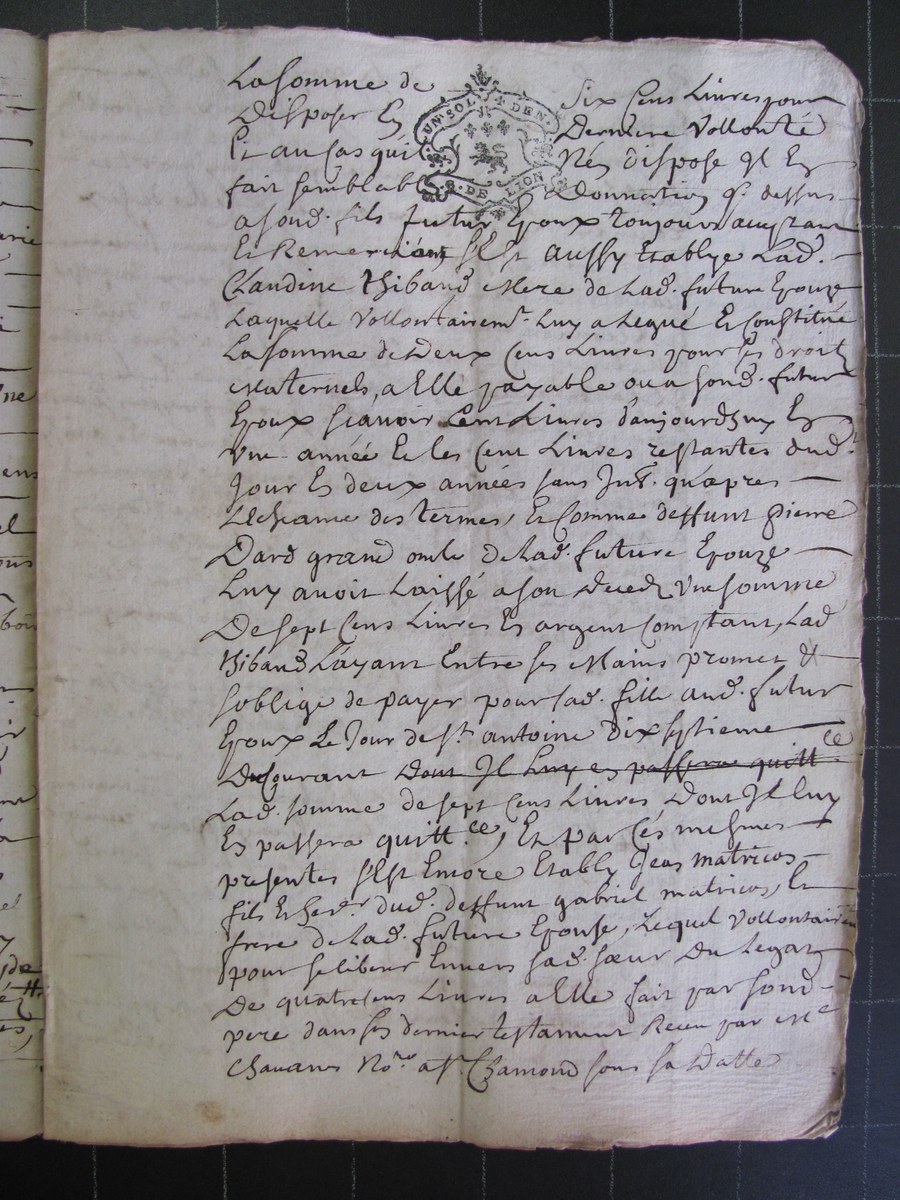 La somme de six cens Livres pour
UN·SOL·4·DEN·
G·DE·LION
Disposer En Derniere Vollonté
Et au cas quil N'en dispose Il En
fait semblable Donnation Cy. dessus
a sond. fils futur Epoux toujours acceptant
Et Remerciant s'Est aussy Etablye Lad.
Claudine Thibaud Mere de Lad. future Epouze
Laquelle Vollontairemt. Luy a Legué Et Constitué
La somme de Deux Cens Livres pour ses droits
Maternels, a Elle payable ou a sond. futur
Epoux scavoir Cent Livres d'aujourd'huy En
Une année Et les Cent Livres restantes dud.
Jour En deux années sans Int. qu'apres
L'Echeance des termes, Et Comme deffunt Pierre
Dard grand oncle de Lad. future Epouze
Luy avoit Laissé a son Deced Une somme
De sept Cens Livres En argent Comptant, Lad
Thibaud L'ayant Entre ses Mains promet &
s'oblige de payer pour sad. fille aud. futur
Epoux Le Jour de St. antoine Dix septieme
Du Courant Dont Il Luy en passera quittce
Lad. somme de sept Cens Livres Dont Il Luy
En passera quittce, Et par Ces mesmes
presentes s'Est Encore Etably Jean matricos
fils Et herer. dud. deffunt gabriel matricos, Et
frere de Lad. future Epouse, Lequel Vollontairem
pour se liberer Envers sad. sœur Du Legat
De quatre cens Livres a Elle fait par sond.
pere dans son dernier testament Receu par Me
Chavanes Nore. a St. Chamond sous sa Datte